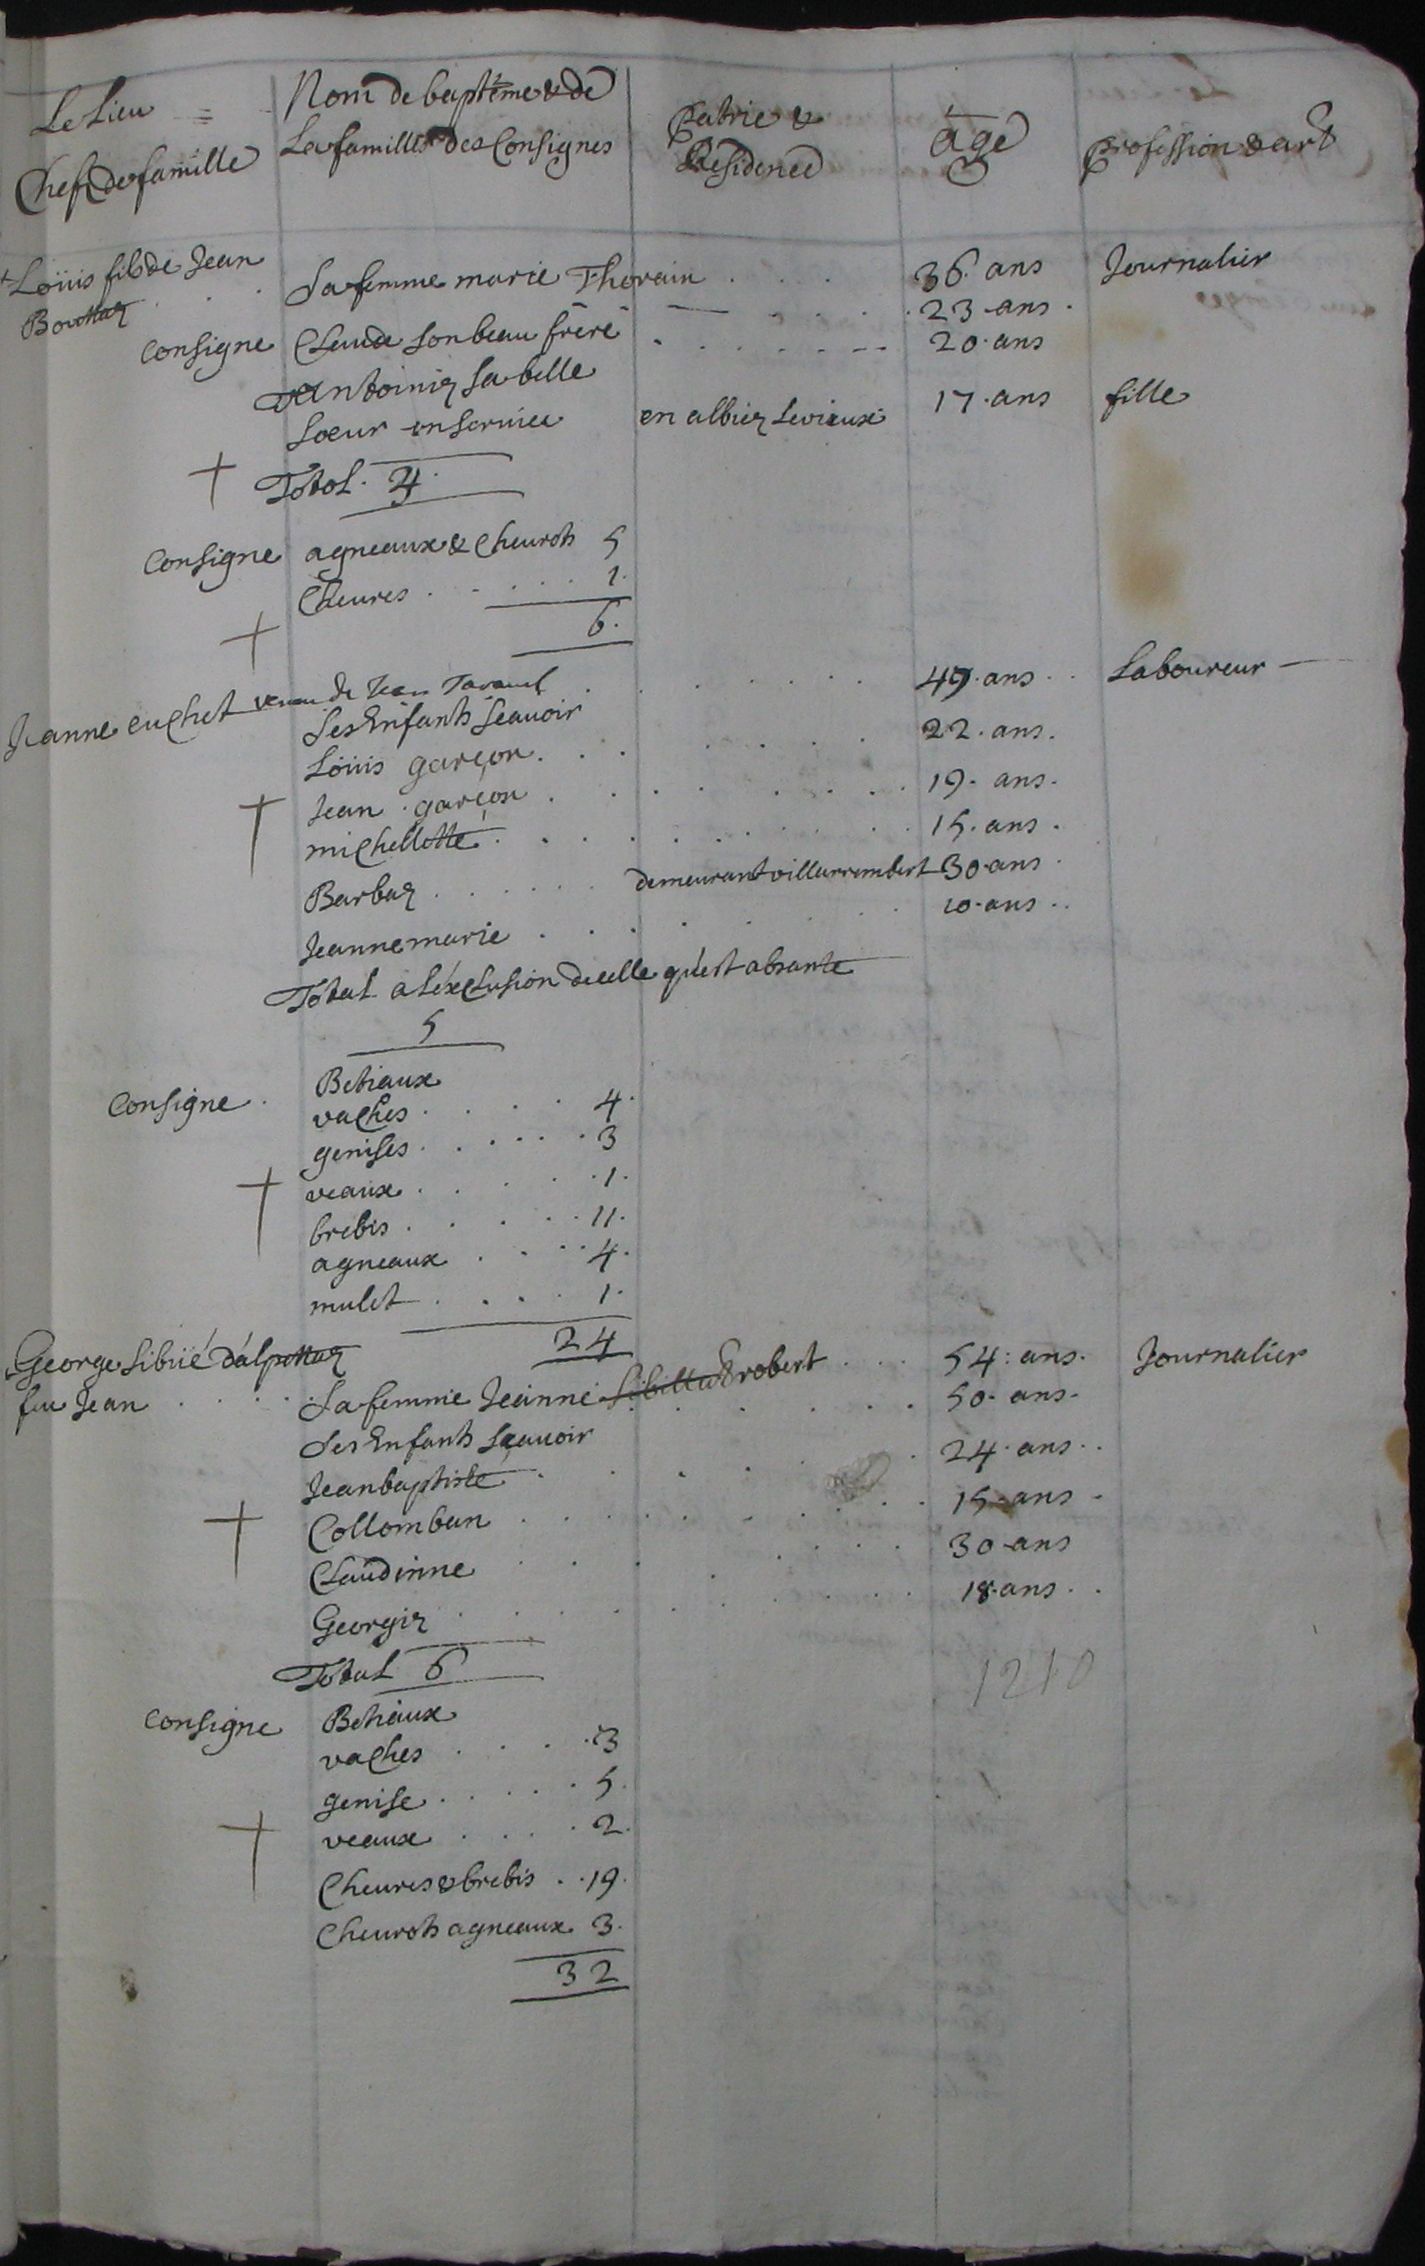 Le Lieu =
Chefs de famille
Nom de baptéme & de
La famille des Consignes
patrie &
Residence
age
profession & art
Loüis fils de Jean
Bouttaz
Sa femme marie Thorain . . . 36. ans Journalier
23 ans .
Consigne Claude son beau frere . . . 20. ans
Antoiniz sa belle
soeur en service en albiez Levieux 17. ans fille
Total . 4.
Consigne agneaux & Cheurots 5
Cheures . . . . 1.
6.
Jeanne cuchet veuve de Jean . . . 49. ans . . Laboureur
ses Enfants scauoir
Loüis garçon . . . 22. ans .
Jean . garçon . . . 19. ans .
michellotte . . . 15. ans .
Barbaz . . . demeurant villarrembert 30. ans .
Jeanne marie . . . 10. ans . .
Total a léxclusion de celle qúest absante
5
Consigne . Betiaux
vaches . . . . 4.
genises . . . . . 3
veaux . . . . 1.
brebis . . . . 11.
agneaux . . . 4.
mulet . . . . 1.
24
George Sibüé dálpettaz
feu Jean . . . . 54. ans . Journalier
Sa femme Jeanne Sibillaz Erobert . . . 50. ans .
ses Enfants scauoir
Jean baptiste . . . 24. ans . .
Collomban . . . 15. ans .
Claudinne . . . 30 ans
Georgiz . . . 18. ans . .
Total 6
1210
Consigne Betiaux
vaches . . . . 3
genise . . . . . 5.
veaux . . . . 2.
Cheures & brebis . . 19.
Cheurots agneaux 3.
32